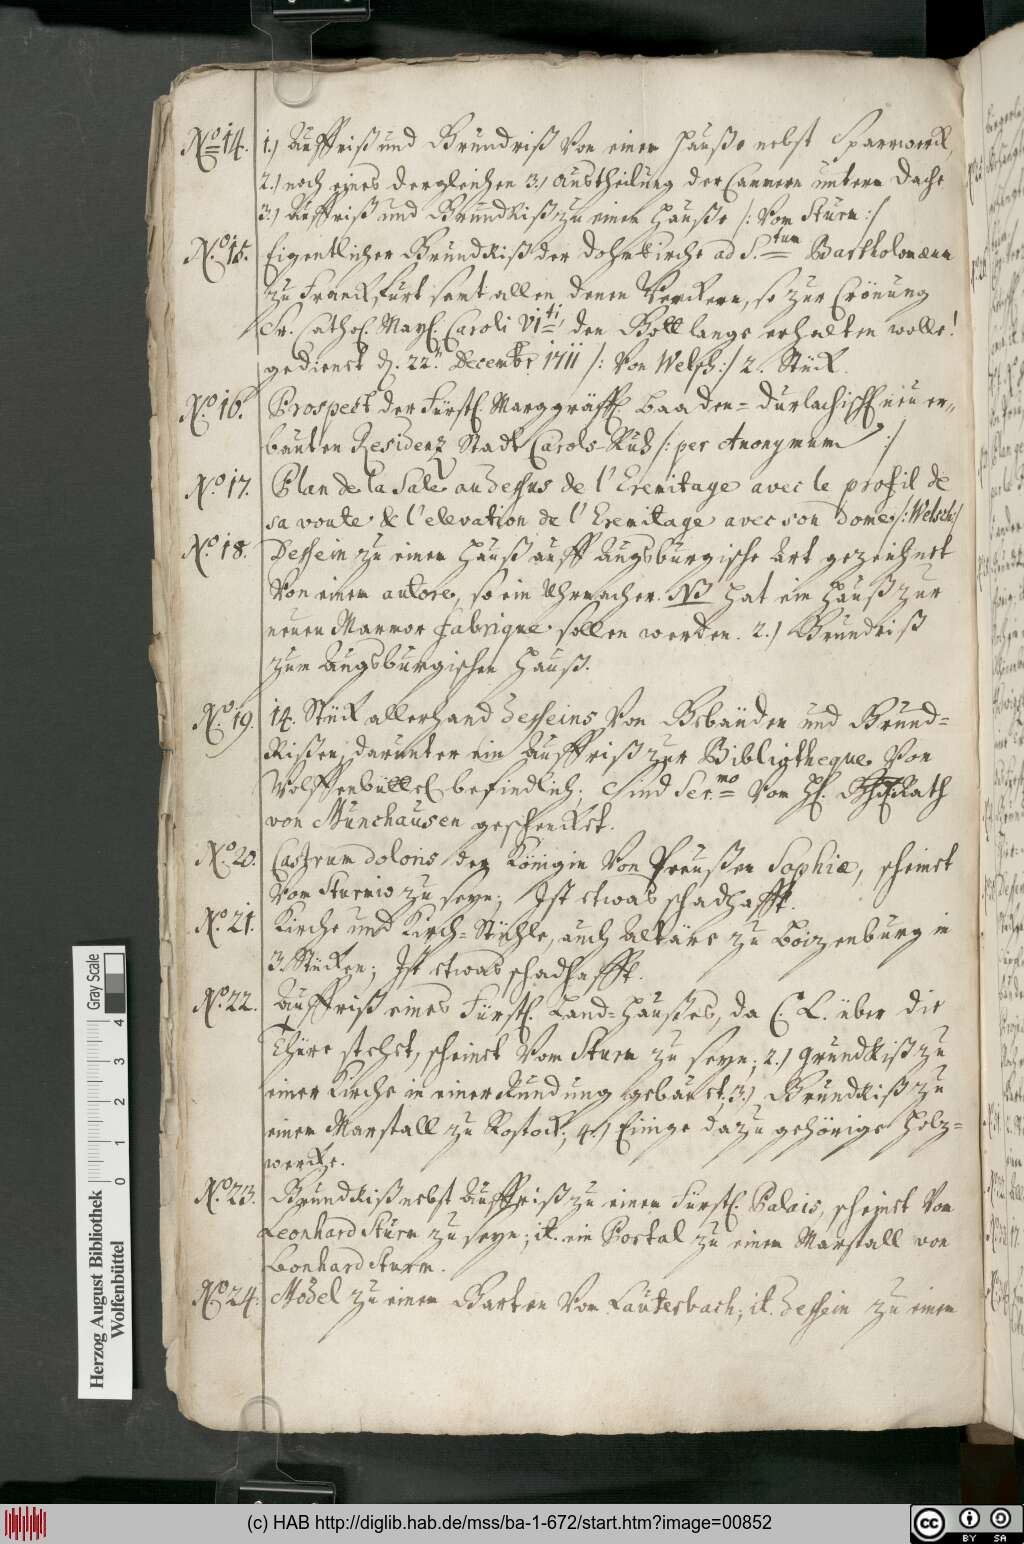 No 14. 1.) Auffriß und Grundriß von einem Hauße nebst Sparrwerck,
2.) noch eines dergleichen 3.) Austheilung der Cammern unterm Dache
3.) Auffriß und GrundRiß zu einem Hauße /: vom Sturm :/
No. 15. Eigentlicher GrundRiß der Dohmkirche ad S.tum Bartholomæum
zu Franckfurt samt allen denen Werckern, so zur Crönung
Sr. Cathol. May. Caroli VIti, den Gott lange erhalten wolle!
gedienet d. 22.n Decembr. 1711 /: von Welsch :/ 2. Stück.
No. 16. Prospect der Fürstl. Marggräffl. Baaden-Durlachischen neu er-
bauten Residenz Stadt Carols-Ruh /: per Anonymum :/
No. 17. Plan de la Sale au dessus de l'Eremitage avec le profil de
sa voute & l'elevation de l'Eremitage avec son Dome /: Welsch :/
No. 18. Dessein zu einem Hauß auff Augsburgische Art gezeichnet
von einem autore, so ein Uhrmacher. NB hat ein Hauß zur
neuen Marmor fabrique sollen werden. 2.) Grundriß
zum Augsburgischen Hauß.
No. 19. 14. Stück allerhand Desseins von Gebäuden und Grund-
Rißen, darunter ein Auffriß zur Bibliotheque von
Wolffenbüttel befindlich; Sind Ser.mo vom H. Rath
von Münchausen geschencket.
No. 20. Castrum doloris der Königin von Preußen Sophiæ, scheinet
vom Sturmio zu seyn; Ist etwas schadhafft.
No. 21. Kirche und Kirch-Stühle, auch Altäre zu Boizenburg in
3. Stücken; Ist etwas schadhafft.
No. 22. Auffriß eines Fürstl. Land-Haußes, da C. L. über die
Thüre stehet, scheinet vom Sturm zu seyn; 2.) GrundRiß zu
einer Kirche in einer Rundung gebauet; 3.) GrundRiß zu
einem Marstall zu Rostock; 4.) Einige dazu gehörige Holz-
wercke.
No. 23. GrundRiß nebst Auffriß zu einem Fürstl. Palais, scheinet von
Leonhard Sturm zu seyn; it. ein Portal zu einem Marstall von
Leonhard Sturm.
No 24. Model zu einem Garten von Lauterbach; it. Dessein zu einem
Gray Scale
4 3 2 1 0
Herzog August Bibliothek
Wolfenbüttel
(c) HAB http://diglib.hab.de/mss/ba-1-672/start.htm?image=00852
cc BY SA